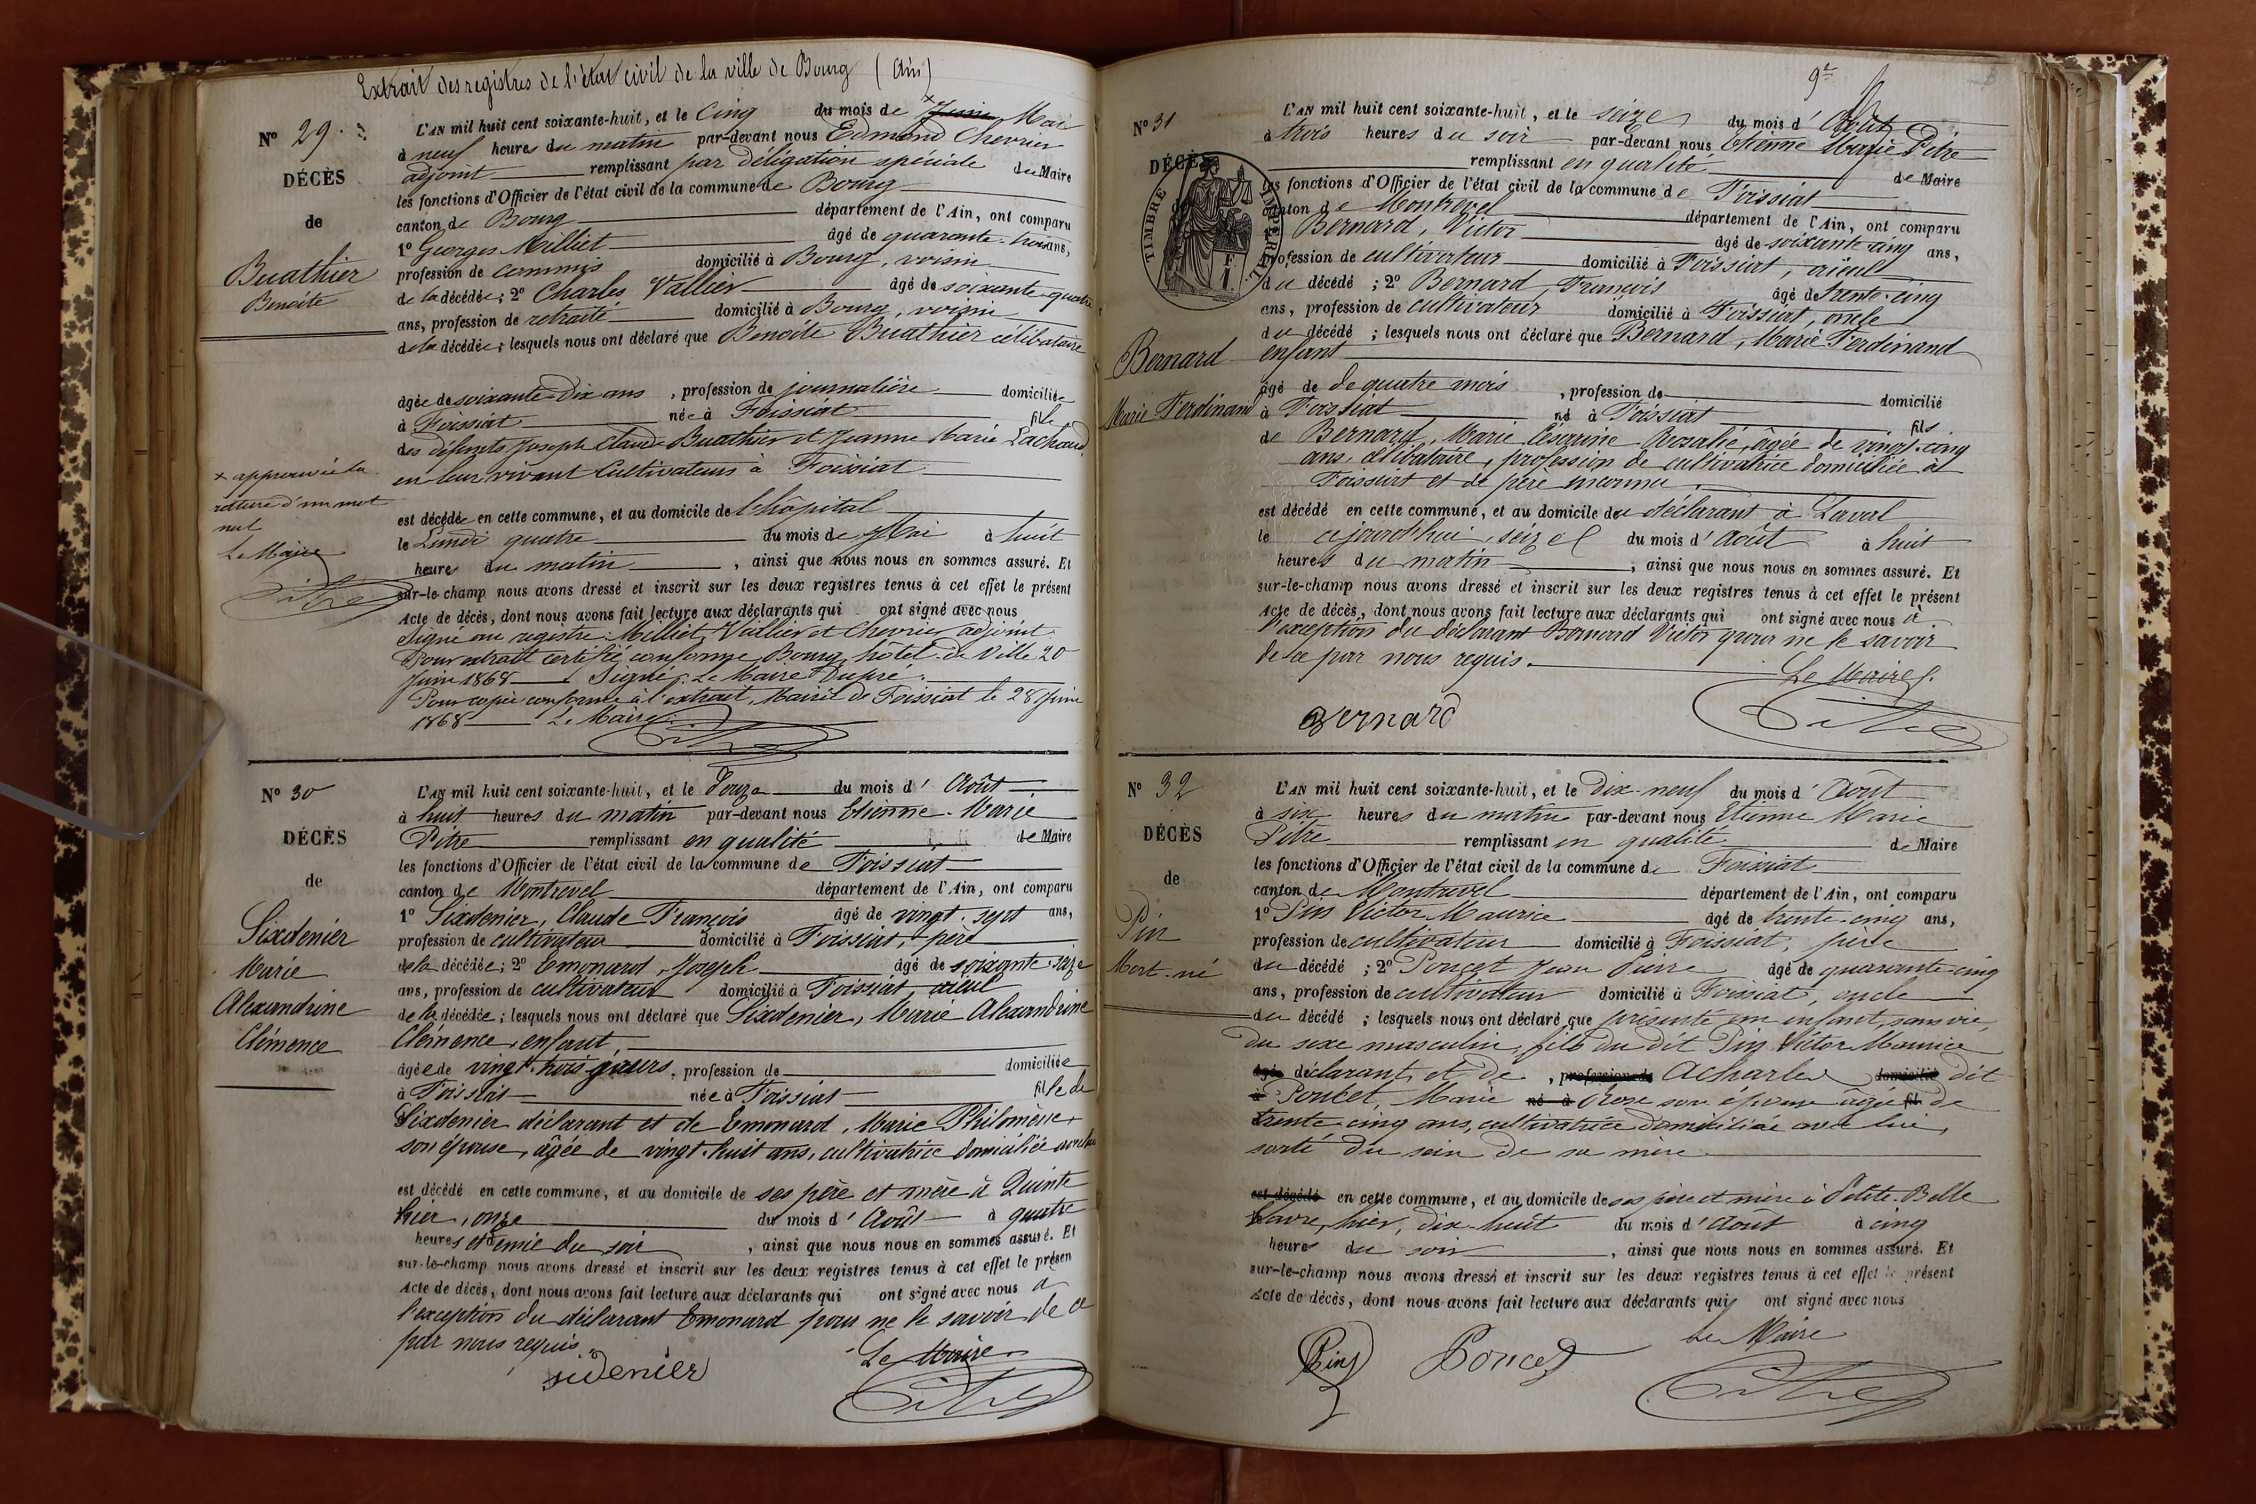 Extrait des registres de l'état civil de la ville de Bourg (Ain)
N° 29.
DÉCÈS
de
Buathier
Benoite
L'AN mil huit cent soixante-huit, et le Cinq du mois de × Juin Mai
à neuf heures du matin par-devant nous Edmond Chevrier
adjoint remplissant par délégation spéciale de Maire
les fonctions d'Officier de l'état civil de la commune de Bourg
canton de Bourg département de l'Ain, ont comparu
1° Georges Milliet âgé de quarante-trois ans,
profession de commis domicilié à Bourg, voisin
de la décédée; 2° Charles Vallier âgé de soixante-quatre
ans, profession de retraité domicilié à Bourg, voisin
de la décédée; lesquels nous ont déclaré que Benoite Buathier célibataire
âgée de soixante-dix ans, profession de journalière domiciliée
à Foissiat née à Foissiat fille
des défunts Joseph Claude Buathier et Jeanne Marie Lachaud,
en leur vivant Cultivateurs à Foissiat
× approuvée la
rature d'un mot
nul
Le Maire
Pitre
est décédée en cette commune, et au domicile de l'hôpital
le Lundi quatre du mois de Mai à huit
heures du matin, ainsi que nous nous en sommes assuré. Et
sur-le-champ nous avons dressé et inscrit sur les deux registres tenus à cet effet le présent
Acte de décès, dont nous avons fait lecture aux déclarants qui ont signé avec nous
Signé au registre: Milliet, Vallier et Chevrier adjoint.
Pour extrait certifié conforme Bourg, hotel de Ville 20
Juin 1868 Signé: Le Maire Dupré.
Pour copie conforme à l'extrait, Mairie de Foissiat le 28 Juin
1868 Le Maire
Pitre
N° 30
DÉCÈS
de
Sixdenier
Marie
Alexandrine
Clémence
L'AN mil huit cent soixante-huit, et le Douze du mois d' Août
à huit heures du matin par-devant nous Etienne-Marie
Pitre remplissant en qualité de Maire
les fonctions d'Officier de l'état civil de la commune de Foissiat
canton de Montrevel département de l'Ain, ont comparu
1° Sixdenier, Claude François âgé de vingt-sept ans,
profession de cultivateur domicilié à Foissiat, père
de la décédée; 2° Emonard, Joseph âgé de soixante-seize
ans, profession de cultivateur domicilié à Foissiat, aieul
de la décédée; lesquels nous ont déclaré que Sixdenier, Marie Alexandrine
Clémence, enfant,
âgée de vingt-trois jours, profession de domiciliée
à Foissiat née à Foissiat fille de
Sixdenier déclarant et de Emonard, Marie Philomène,
son épouse, âgée de vingt-huit ans, cultivatrice domiciliée avec lui
est décédé en cette commune, et au domicile de ses père et mère à Quinte
hier, onze du mois d' Août à quatre
heures et demie du soir, ainsi que nous nous en sommes assuré. Et
sur-le-champ nous avons dressé et inscrit sur les deux registres tenus à cet effet le présen
Acte de décès, dont nous avons fait lecture aux déclarants qui ont signé avec nous à
l'exception du déclarant Emonard pour ne le savoir de ce
par nous requis.
sidenier
Le Maire
Pitre
9e
N° 31
DÉCÈS
TIMBRE IMPÉRIAL
Bernard
Marie Ferdinand
L'AN mil huit cent soixante-huit, et le seize du mois d' Août
à trois heures du soir par-devant nous Etienne Marie Pitre
remplissant en qualité de Maire
les fonctions d'Officier de l'état civil de la commune de Foissiat
canton de Montrevel département de l'Ain, ont comparu
Bernard, Victor âgé de soixante-cinq ans,
profession de cultivateur domicilié à Foissiat, aïeul
du décédé; 2° Bernard, François âgé de trente-cinq
ans, profession de cultivateur domicilié à Foissiat, oncle
du décédé; lesquels nous ont déclaré que Bernard, Marie Ferdinand
enfant
âgé de de quatre mois, profession de domicilié
à Foissiat né à Foissiat fils
de Bernard, Marie Césarine Rosalie, âgée de vingt-cinq
ans, célibataire, profession de cultivatrice domiciliée à
Foissiat et de père inconnu.
est décédé en cette commune, et au domicile du déclarant à Laval
le ajourd'hui, seize du mois d' Août à huit
heures du matin, ainsi que nous nous en sommes assuré. Et
sur-le-champ nous avons dressé et inscrit sur les deux registres tenus à cet effet le présent
Acte de décès, dont nous avons fait lecture aux déclarants qui ont signé avec nous à
l'exception du déclarant Bernard Victor pour ne le savoir
de ce par nous requis.
Le Maire
Bernard
Pitre
N° 32
DÉCÈS
de
Pin
Mort-né
L'AN mil huit cent soixante-huit, et le Dix-neuf du mois d' Août
à six heures du matin par-devant nous Etienne Marie
Pitre remplissant en qualité de Maire
les fonctions d'Officier de l'état civil de la commune de Foissiat
canton de Montrevel département de l'Ain, ont comparu
1° Pin Victor Maurice âgé de trente-cinq ans,
profession de cultivateur domicilié à Foissiat, père
du décédé; 2° Poncet Jean Pierre âgé de quarante-cinq
ans, profession de cultivateur domicilié à Foissiat, oncle
du décédé; lesquels nous ont déclaré que présenté un enfant, sans vie,
du sexe masculin, fils du dit Pin Victor Maurice
âgé déclarant, et de, profession de Acharles domicilié dit
à Poncet, Marie né à Rose son épouse âgée fil de
trente cinq ans, cultivatrice domiciliée avec lui,
sorti du sein de sa mère
est décédé en cette commune, et au domicile de ses père et mère à Petite-Belle
hier, dix-huit du mois d' Août à cinq
heures du soir, ainsi que nous nous en sommes assuré. Et
sur-le-champ nous avons dressé et inscrit sur les deux registres tenus à cet effet le présent
Acte de décès, dont nous avons fait lecture aux déclarants qui ont signé avec nous
Le Maire
Pin Poncet
Pitre